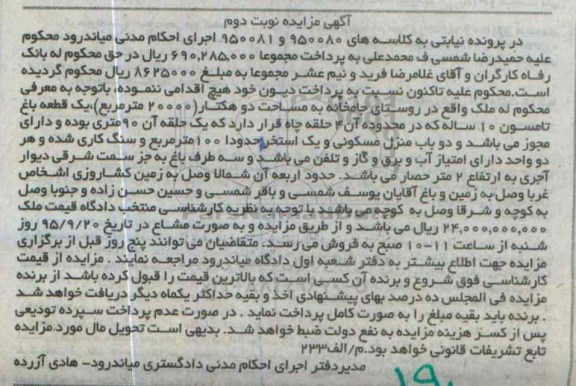 آگهی مزایده نوبت دوم
در پرونده نیابتی به کلاسه های ۹۵۰۰۸۰ و ۹۵۰۰۸۱ اجرای احکام مدنی میاندرود محکوم
علیه حمیدرضا شمسی ف محمدعلی به پرداخت مجموعا ۶۹۰,۲۸۵,۰۰۰ ریال در حق محکوم له بانک
رفاه کارگران و آقای غلامرضا فرید و نیم عشر مجموعا به مبلغ ۸۶۲۵۰۰۰ ریال محکوم گردیده
است.محکوم علیه تاکنون نسبت به پرداخت دیون خود هیچ اقدامی ننموده، باتوجه به معرفی
محکوم له ملک واقع در روستای جامخانه به مساحت دو هکتار(۲۰۰۰۰ مترمربع)یک قطعه باغ
تامسون ۱۰ ساله که در محدوده آن ۲ حلقه چاه قرار دارد که یک حلقه آن ۹۰متری بوده و دارای
مجوز می باشد و دو باب منزل مسکونی و یک استخر حدودا ۱۰۰مترمربع و سنگ کاری شده و هر
دو واحد دارای امتیاز آب و برق و گاز و تلفن می باشد و سه طرف باغ به جز سمت شرقی دیوار
آجری به ارتفاع ۲ متر حصار می باشد. حدود اربعه آن شمالا وصل به زمین کشاروزی اشخاص
غربا وصل به زمین و باغ آقایان یوسف شمسی و باقر شمسی و حسین حسن زاده و جنوبا وصل
به کوچه و شرقا وصل به کوچه می باشد با توجه به نظریه کارشناسی منتخب دادگاه قیمت ملک
۲۴,۰۰۰,۰۰۰,۰۰۰ ریال می باشد و از طریق مزایده و به صورت مشاع در تاریخ ۹۵/۹/۲۰ روز
شنبه از ساعت ۱۱-۱۰ صبح به فروش می رسد. متقاضیان می توانند پنج روز قبل از برگزاری
مزایده جهت اطلاع بیشتر به دفتر شعبه اول دادگاه میاندرود مراجعه نمایند . مزایده از قیمت
کارشناسی فوق شروع و برنده آن کسی است که بالاترین قیمت را قبول کرده باشد از برنده
مزایده فی المجلس ده درصد بهای پیشنهادی اخذ و بقیه حداکثر یکماه دیگر دریافت خواهد شد
. برنده باید بقیه مبلغ را به صورت کامل پرداخت نماید . در صورت عدم پرداخت سپرده تودیعی
پس از کسر هزینه مزایده به نفع دولت ضبط خواهد شد. بدیهی است تحویل مال مورد مزایده
تابع تشریفات قانونی خواهد بود.م/الف۲۳۳
مدیردفتر اجرای احکام مدنی دادگستری میاندرود- هادی آزرده